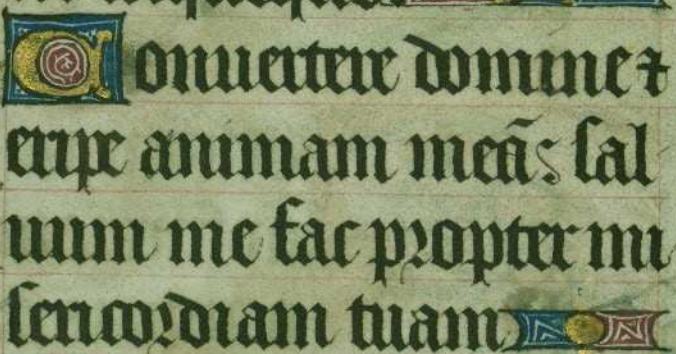 Conuertere domine ⁊
eripe animam meā: sal
uum me fac propter mi
sericordiam tuam